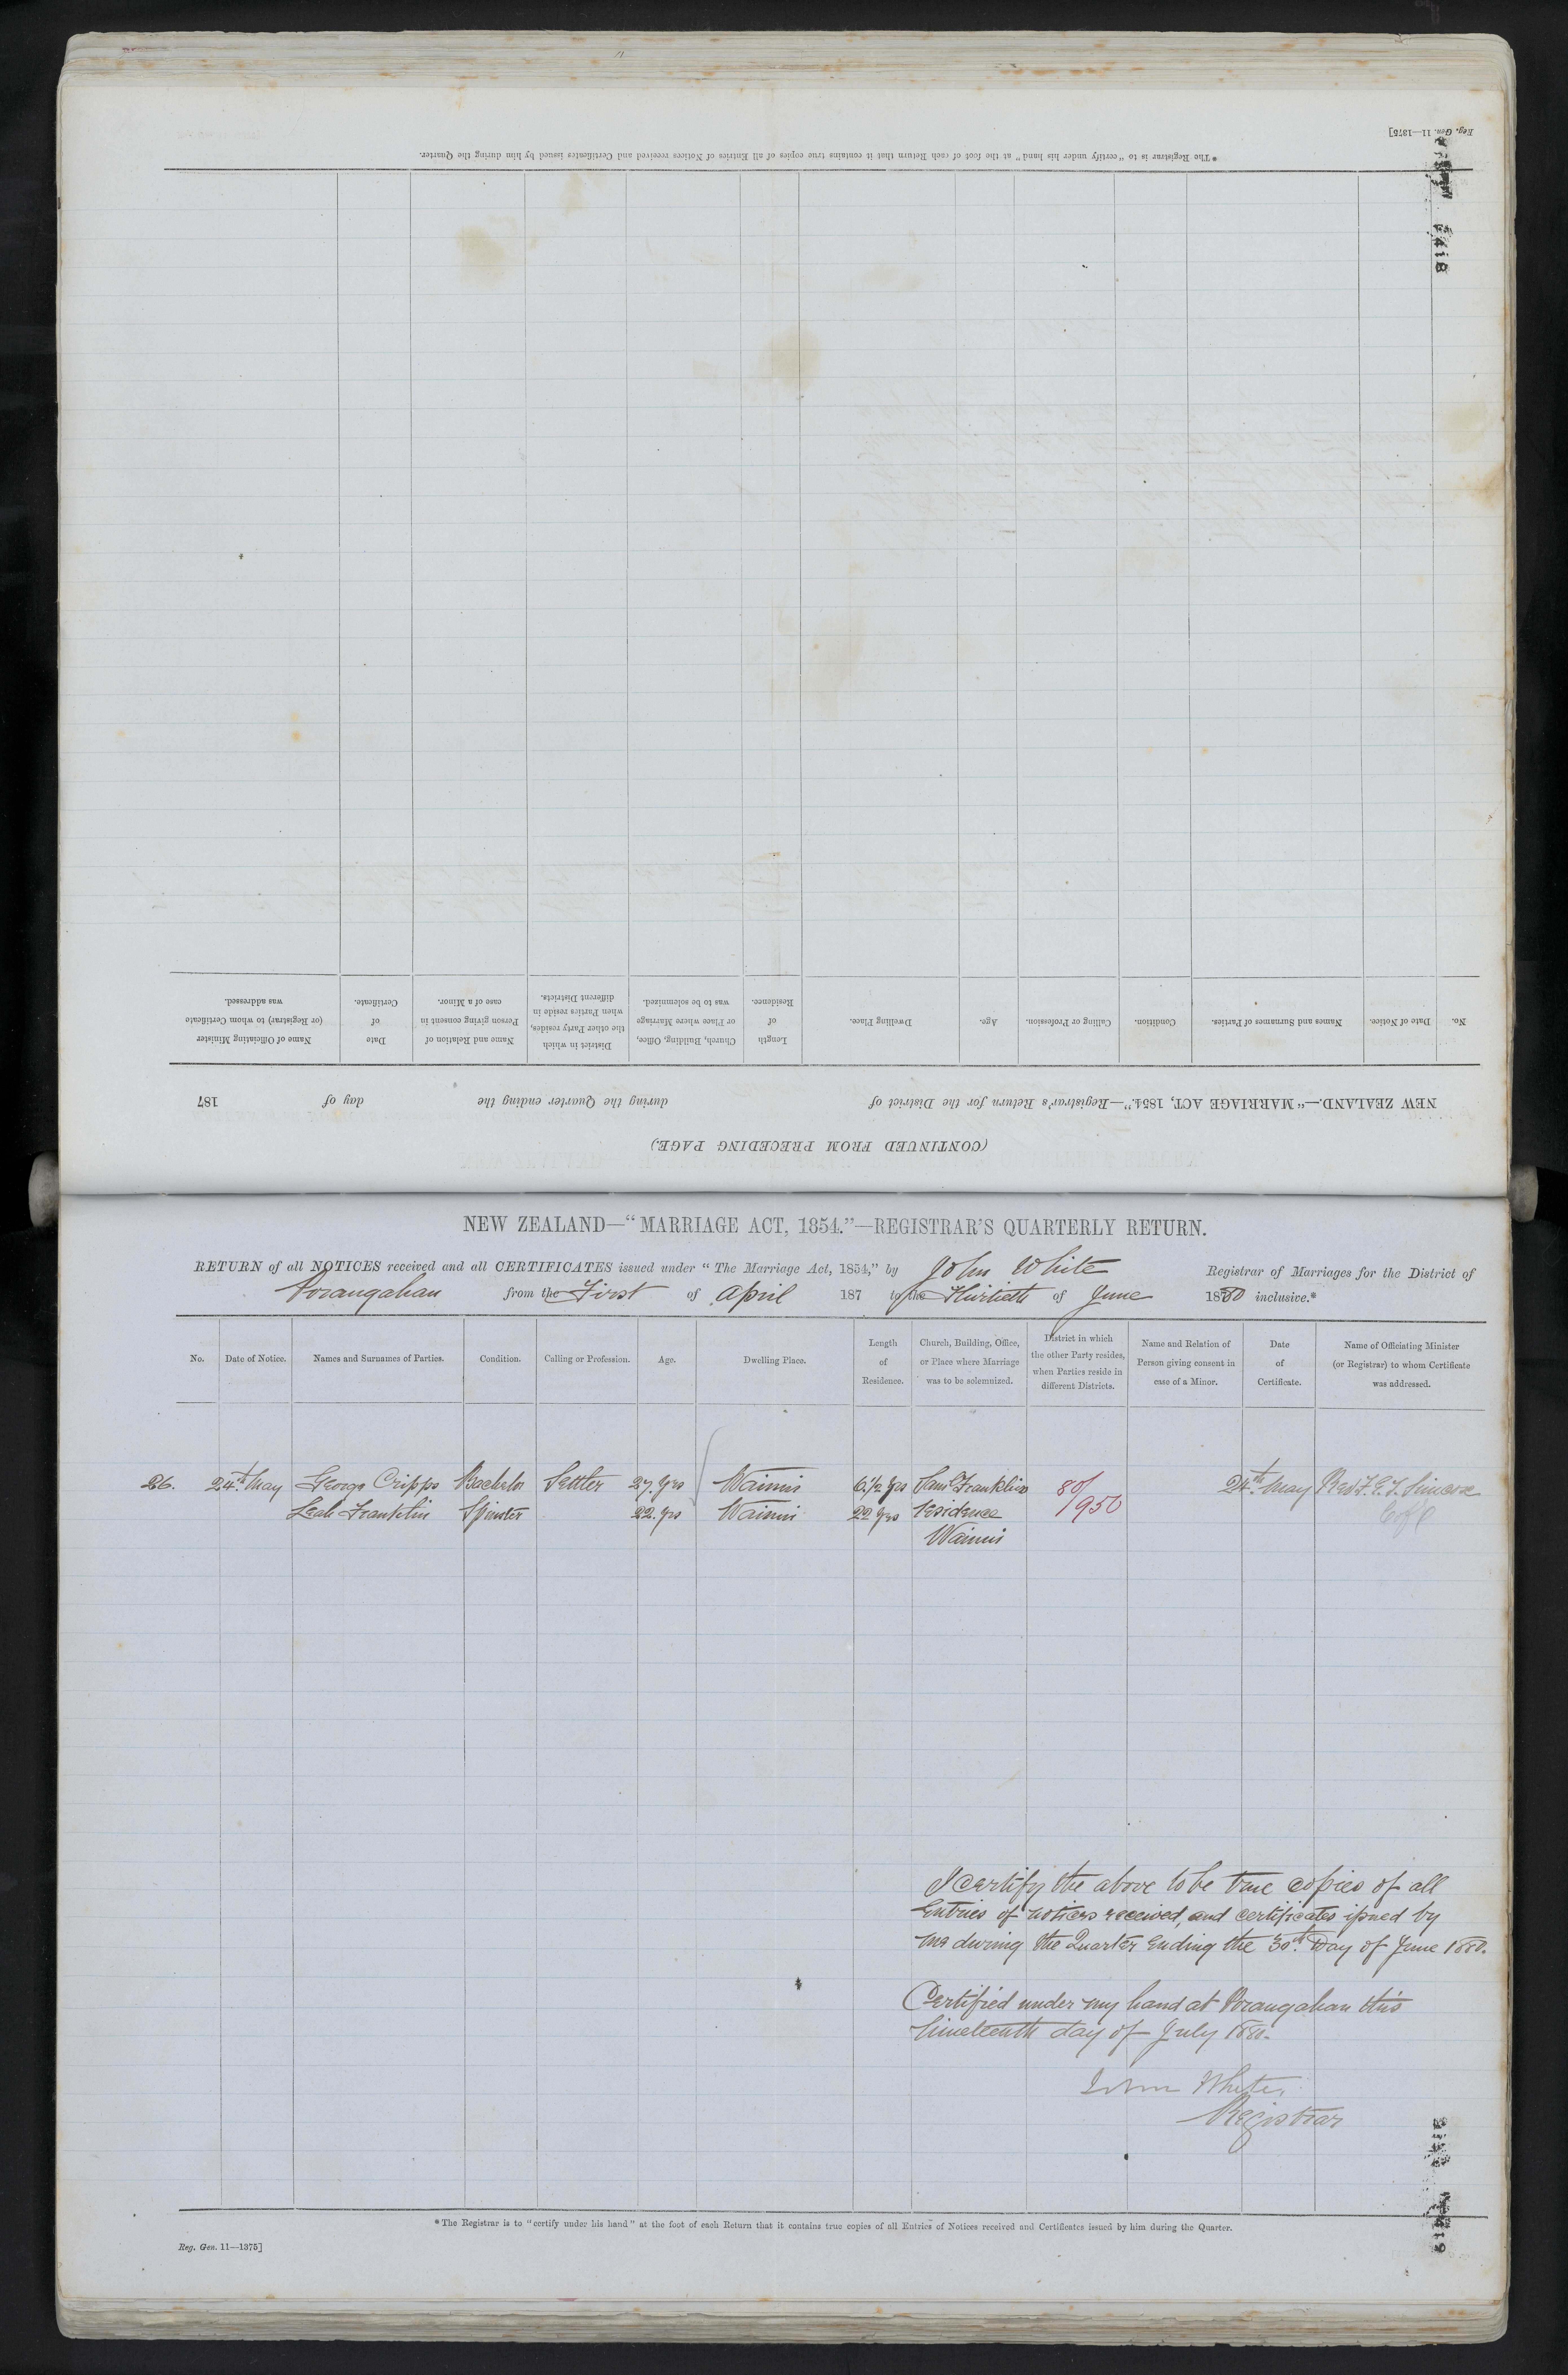 Reg. Gen. 11—1375]
* The Registrar is to "certify under his hand" at the foot of each Return that it contains true copies of all Entries of Notices received and Certificates issued by him during the Quarter.
(CONTINUED FROM PRECEDING PAGE.)
NEW ZEALAND.—"MARRIAGE ACT, 1854."—Registrar's Return for the District of during the Quarter ending the day of 187
No. Date of Notice. Names and Surnames of Parties. Condition. Calling or Profession. Age. Dwelling Place. Length of Residence. Church, Building, Office, or Place where Marriage was to be solemnized. District in which the other Party resides, when Parties reside in different Districts. Name and Relation of Person giving consent in case of a Minor. Date of Certificate. Name of Officiating Minister (or Registrar) to whom Certificate was addressed.
2418
NEW ZEALAND—"MARRIAGE ACT, 1854."—REGISTRAR'S QUARTERLY RETURN.
RETURN of all NOTICES received and all CERTIFICATES issued under "The Marriage Act, 1854," by John White Registrar of Marriages for the District of
Porangahau from the First of April 187 to the Thirtieth of June 1880 inclusive.*
No. Date of Notice. Names and Surnames of Parties. Condition. Calling or Profession. Age. Dwelling Place. Length of Residence. Church, Building, Office, or Place where Marriage was to be solemnized. District in which the other Party resides, when Parties reside in different Districts. Name and Relation of Person giving consent in case of a Minor. Date of Certificate. Name of Officiating Minister (or Registrar) to whom Certificate was addressed.
26. 24th May George Cripps Bachelor Settler 27. yrs Wainui 6 1/2 yrs Saml Franklins 80/ 24th May Revd F. E. T. Simcox
Leah Franklin Spinster 22. yrs Wainui 22 yrs residence 1950 C of E
Wainui
I certify the above to be true copies of all
Entries of notices received, and certificates issued by
me during the Quarter Ending the 30th Day of June 1880.
Certified under my hand at Porangahau this
Nineteenth day of July 1880.
John White,
Registrar
* The Registrar is to "certify under his hand" at the foot of each Return that it contains true copies of all Entries of Notices received and Certificates issued by him during the Quarter.
Reg. Gen. 11—1375]